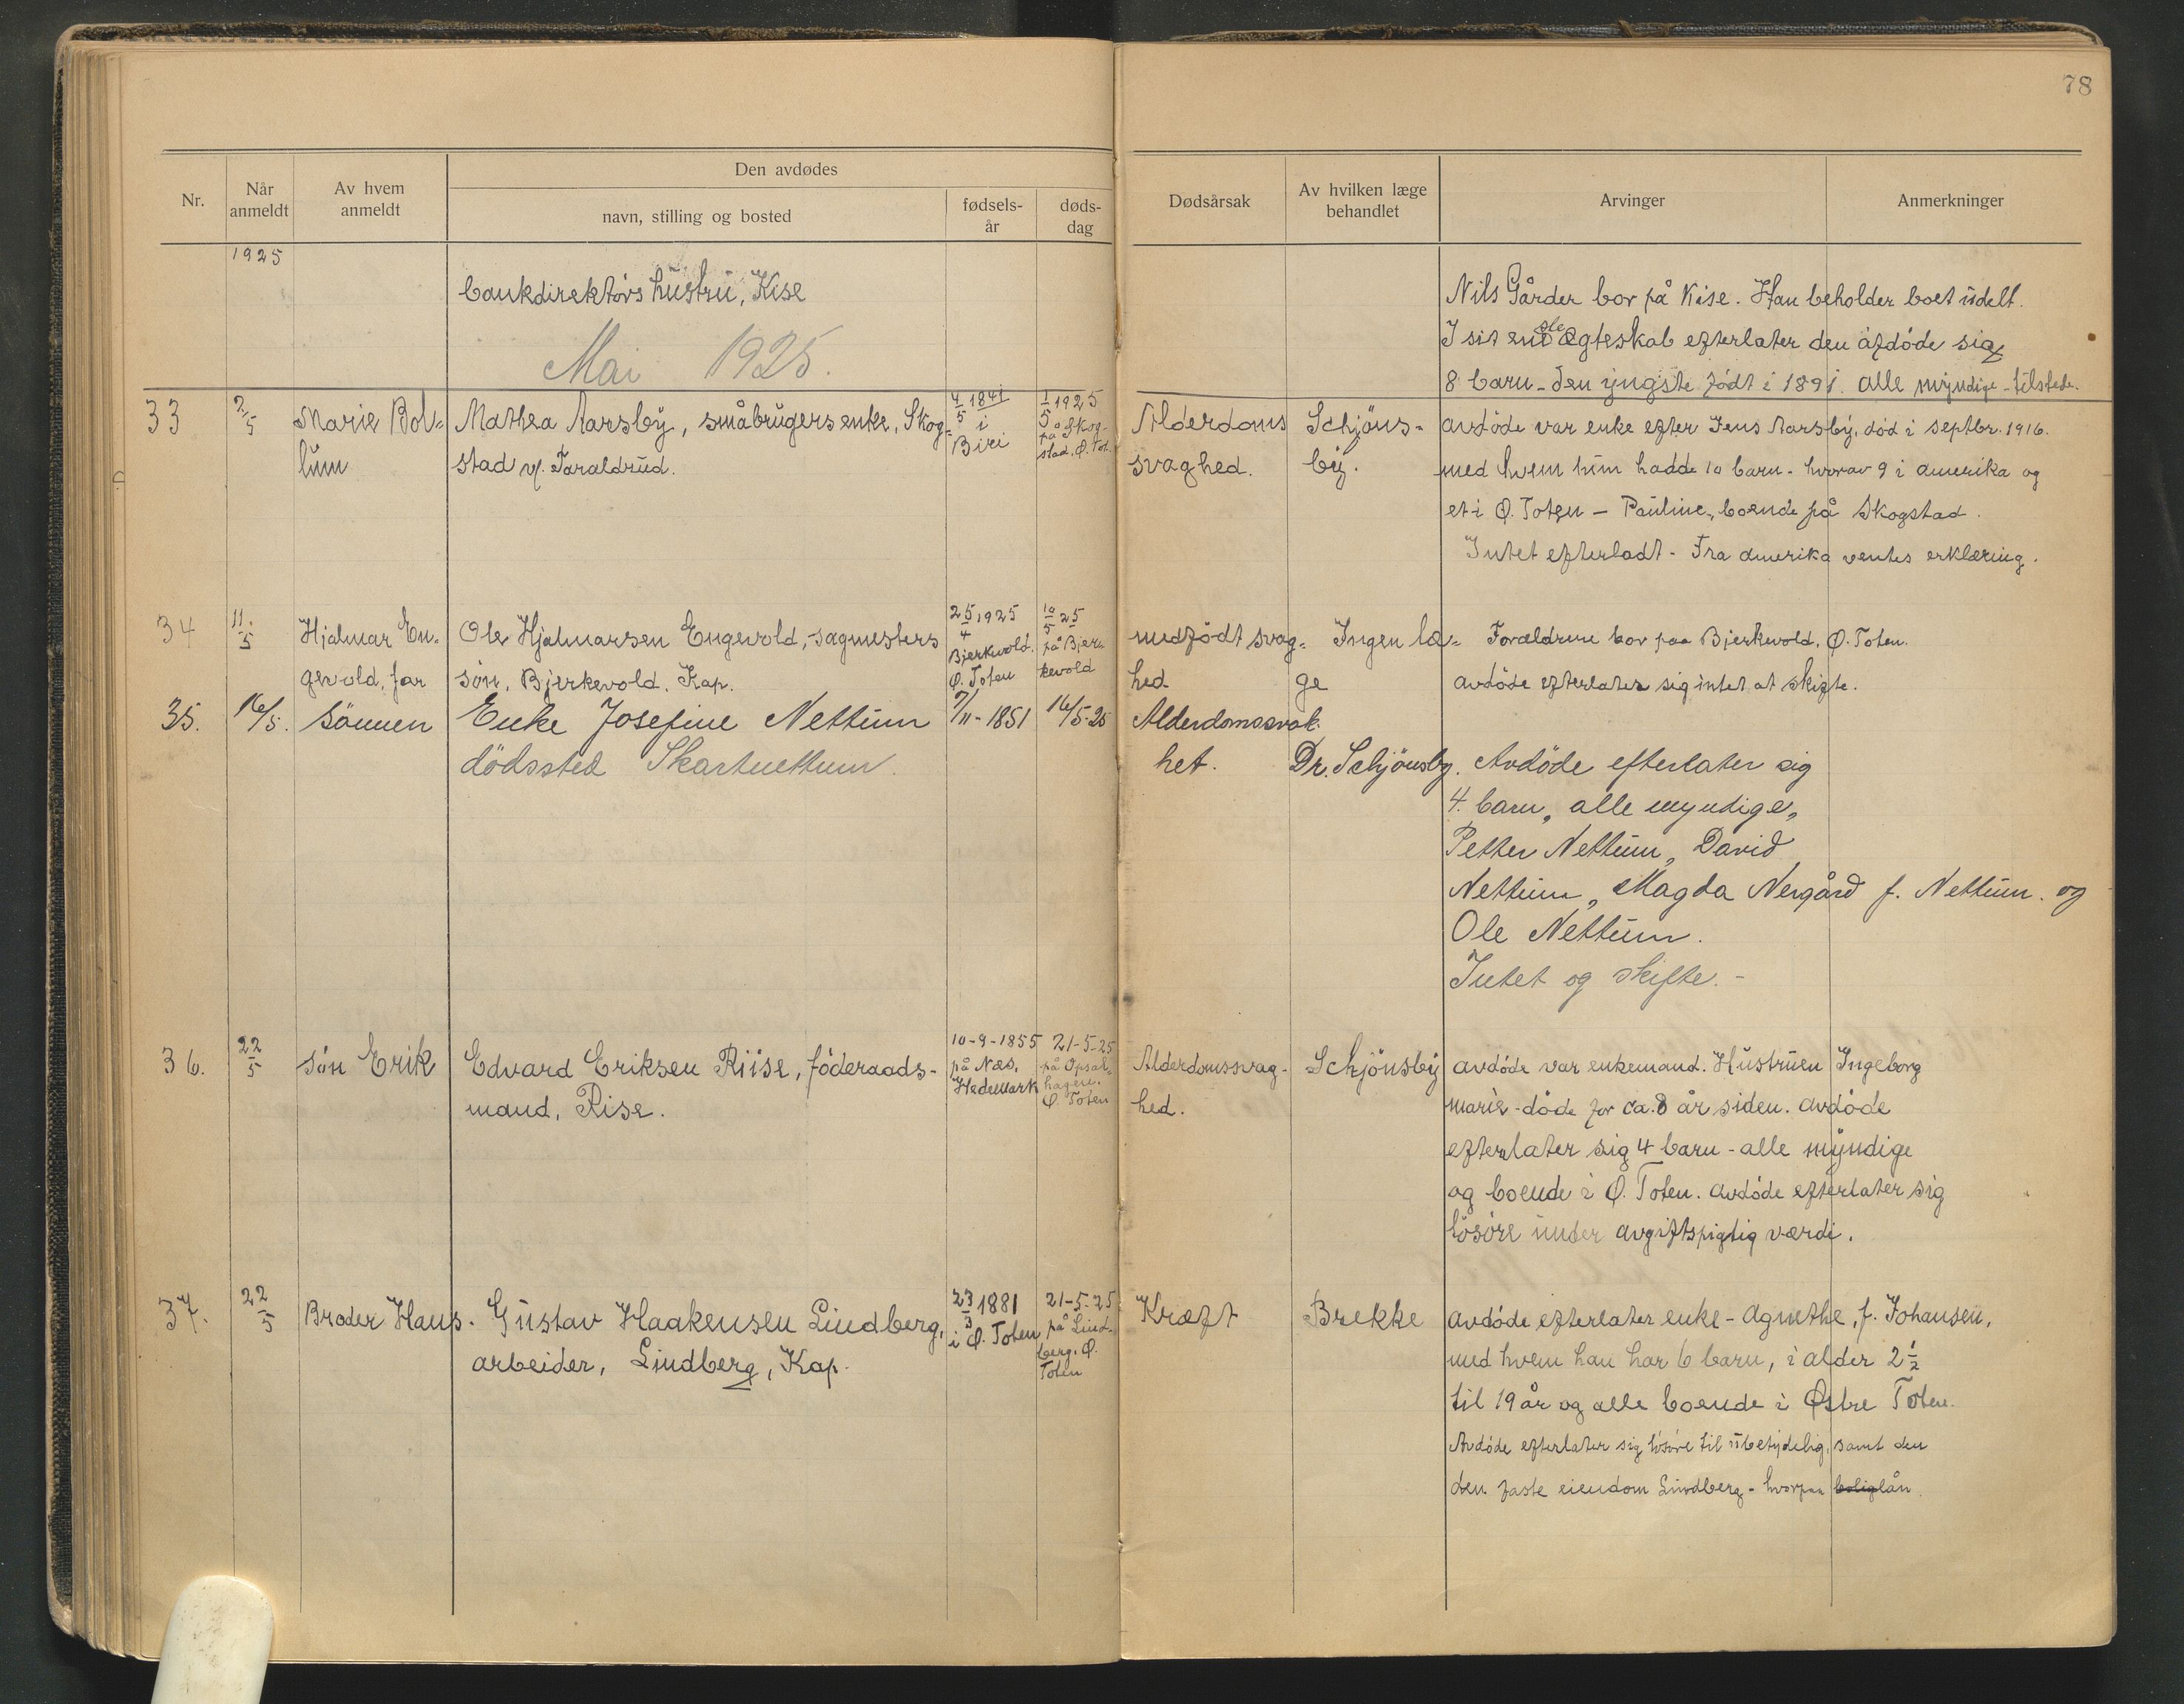 78
Nr.
Når anmeldt
Av hvem anmeldt
Den avdødes
navn, stilling og bosted
fødsels-
år
døds-
dag
Dødsårsak
Av hvilken læge
behandlet
Arvinger
Anmerkninger
1925
bankdirektørs hustru, Kise
Mai 1925.
Nils Gårder bor på Kise. Han beholder boet udelt.
I sit eneste ægteskab efterlater den afdøde sig
8 barn - den yngste født i 1891. alle myndige - tilstede.
33
7/5
Marie Bol-
lum
Mathea Aarsby, småbrugers enke, Skog-
stad v/ Faraldrud.
4/5 1841
i
Biri
1/5 1925
på Skog-
stad, Ø. Tot.
Alderdoms
svaghed.
Schjøns-
by.
avdøde var enke efter Jens Aarsby, død i septbr. 1916.
med hvem hun hadde 10 barn - hvorav 9 i amerika og
et i Ø. Toten - Pauline, boende på Skogstad.
Intet efterladt - Fra amerika ventes erklæring.
34
11/5
Hjalmar En-
gevold, far
Ole Hjalmarsen Engevold, sagmesters
søn, Bjerkevold. Kap.
25/4 1925
Bjerkvold.
Ø. Toten
10/5 25
på Bjer-
kevold
medfødt svag-
hed
Ingen læ-
ge
Forældrene bor paa Bjerkevold, Ø. Toten.
avdøde efterlater sig intet at skifte.
35.
16/5.
sønnen
Enke Josefine Nettum
dødssted Skartnettum.
7/11 - 1851
16/5-25
Alderdomssvak-
het.
Dr. Schjønsby.
Avdøde efterlater sig
4. barn, alle myndige,
Petter Nettum, David
Nettum, Magda Nergård f. Nettum. og
Ole Nettum.
Intet og skifte. -
36.
22/5
søn Erik
Edvard Eriksen Riise, føderaads-
mand, Rise.
10-9-1855
på Næs,
Hedemark
21-5-25
på Opsal-
hagen.
Ø. Toten
Alderdomssvag-
hed.
Schjønsby
avdøde var enkemand. Hustruen Ingeborg
marie - døde for ca. 8 år siden. avdøde
efterlater sig 4 barn - alle myndige
og boende i Ø. Toten. avdøde efterlater sig
løsøre under avgiftspligtig værdi.
37.
22/5
Broder Hans.
Gustav Haakensen Lindberg,
arbeider, Lindberg, Kap.
23/3 1881
i Ø. Toten
21-5-25
på Lind-
berg, Ø.
Toten
Kræft
Brekke
avdøde efterlater enke - Agnethe, f. Johansen,
med hvem han har 6 barn, i alder 2 1/2
til 19 år og alle boende i Østre Toten.
Avdøde efterlater sig løsøre til ubetydelig, samt den
den faste eiendom Lindberg - hvorpaa boliglån.